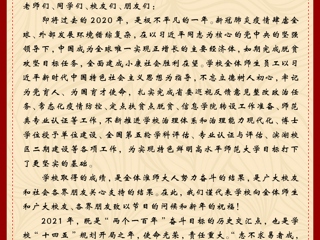 老师们、同学们、校友们、朋友们：
即将过去的2020年，是极不平凡的一年。新冠肺炎疫情肆虐全
球、外部发展环境错综复杂，在以习近平同志为核心的党中央的坚强
领导下，中国成为全球唯一实现正增长的主要经济体，如期完成脱贫
攻坚目标任务，全面建成小康社会胜利在望。学校全体师生员工以习
近平新时代中国特色社会主义思想为指导，不忘立德树人初心，牢记
为党育人、为国育才使命，扎实完成省委巡视反馈意见整改政治任
务，常态化疫情防控、定点扶贫点脱贫、信息学院转设工作准备、师范
类专业认证等工作，不断推进学校治理体系和治理能力现代化，博士
学位授予单位建设、全国第五轮学科评估、专业认证与评估、滨湖校
区二期建设等各项工作，为实现特色鲜明高水平师范大学目标打下
了更坚实的基础。
学校取得的成绩，是全体淮师大人努力奋斗的结果，是广大校
友和社会各界朋友关心支持的结果。在此，我们谨代表学校向全体师生
和广大校友、各界朋友致以节日的问候和新年的祝福！
2021年，既是“两个一百年”奋斗目标的历史交汇点，也是学
校“十四五”规划开局之年，使命光荣，责任重大。“志不求易者成，